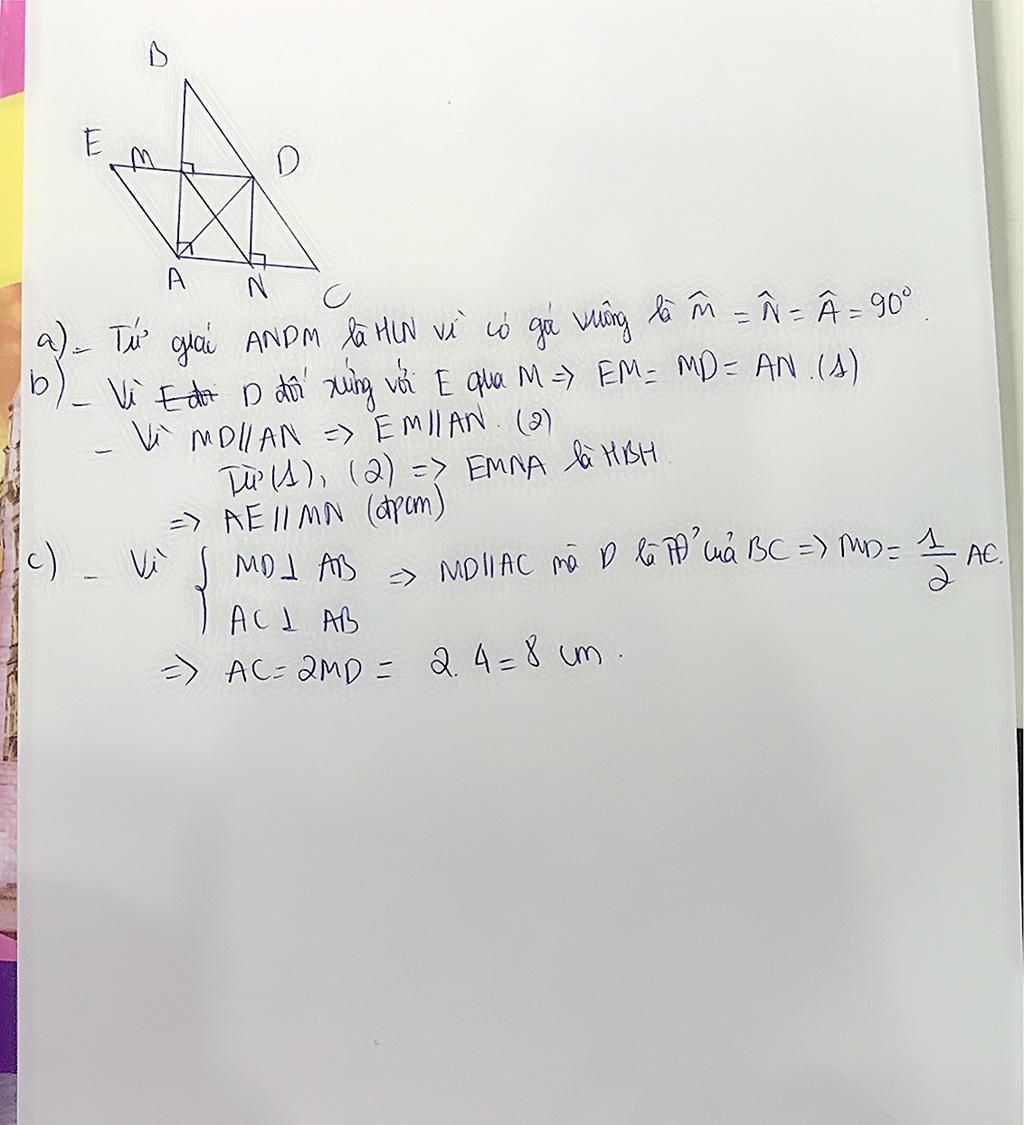 B
E M D
A N C
a) - Tứ giác ANDM là HCN vì có góc vuông là M̂ = N̂ = Â = 90°.
b) - Vì D đối xứng với E qua M => EM = MD = AN. (1)
- Vì MD // AN => EM // AN. (2)
Từ (1), (2) => EMNA là HBH.
=> AE // MN (đpcm)
c) - Vì { MD ⊥ AB => MD // AC mà D là TĐ' của BC => MD = 1/2 AC.
AC ⊥ AB
=> AC = 2MD = 2.4 = 8 cm.